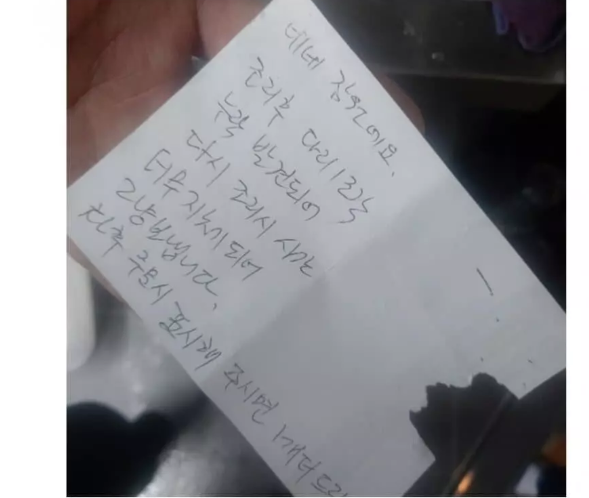 네네 직원이에요.
조리후 다리1조각
누락 발견되어
다시 조리시 시간
너무 지체되어
그냥 보냅니다.
차후 주문시 표시해 주시면 1개 더 드리